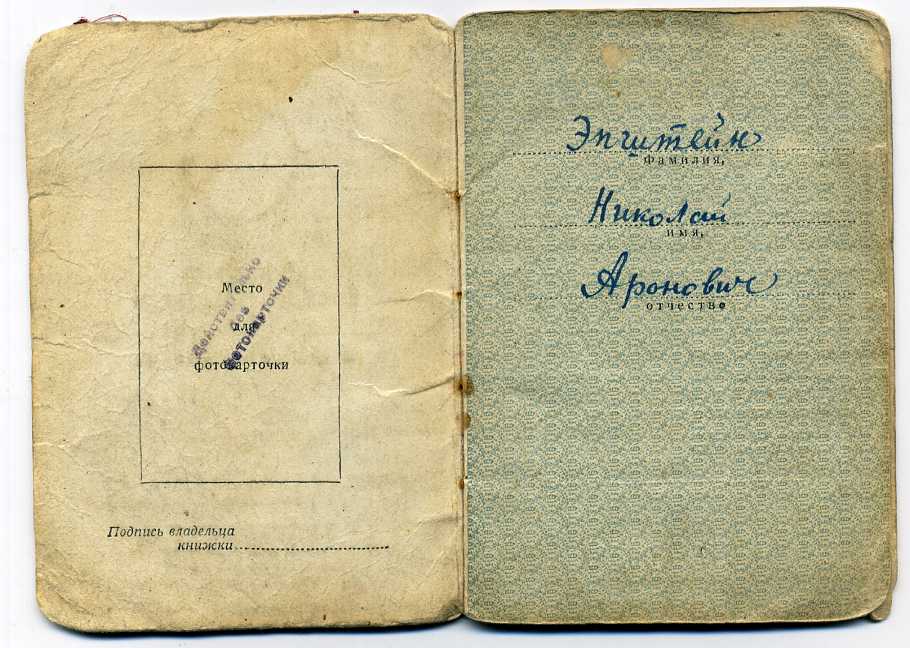 Место
для
фотокарточки
Действительно
без
фотокарточки
Подпись владельца
книжки
Эпштейн
Фамилия,
Николай
имя,
Аронович
отчество